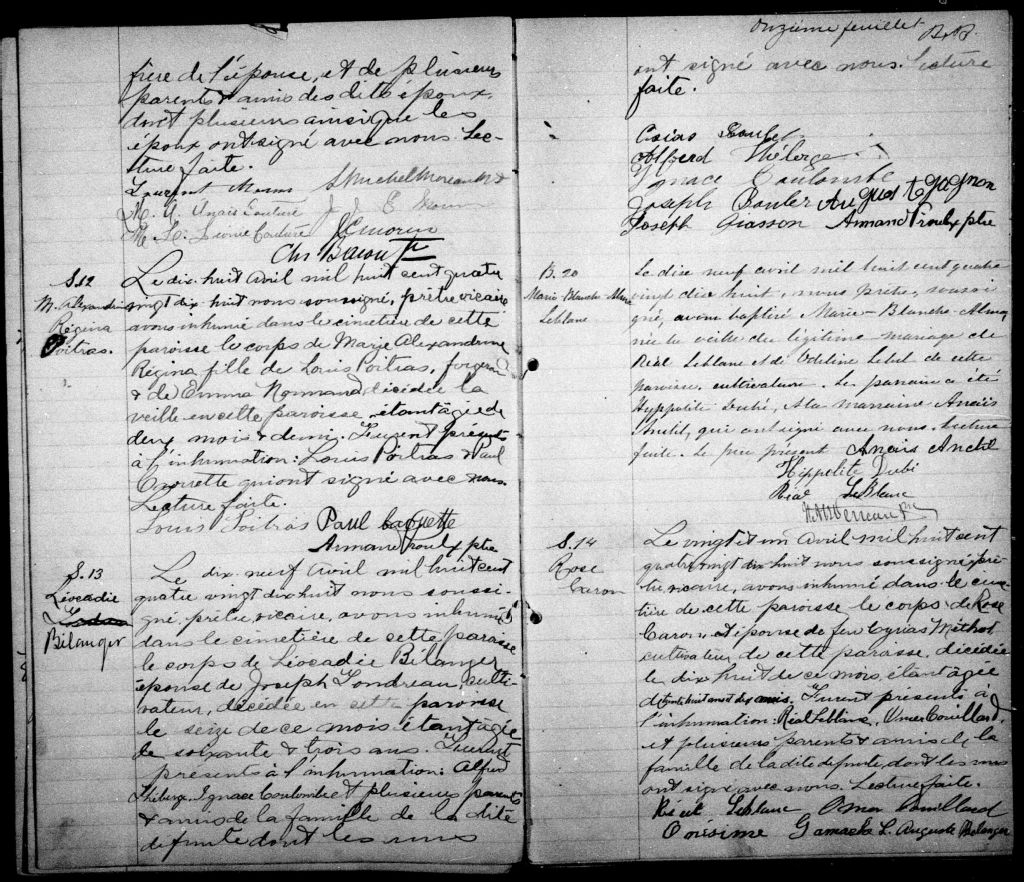 frère de l'épouse, et de plusieurs
parents & amis des dits époux,
dont plusieurs ainsi que les
époux ont signé avec nous. Lec-
ture faite.
Laurent Morin
M. A. Anaïs Couture J. E. Morin
M. L. Couture
Chs Bacon Ptr
S. 12
M. Alexandrine
Régina
Poitras.
Le dix huit avril mil huit cent quatre
vingt dix huit nous soussigné, prêtre vicaire
avons inhumé dans le cimetière de cette
paroisse le corps de Marie Alexandrine
Régina fille de Louis Poitras, forgeron
& de Emma Normand, décédée la
veille en cette paroisse étant âgée de
deux mois & demi. Furent présents
à l'inhumation: Louis Poitras & Paul
qui ont signé avec nous.
Lecture faite.
Louis Poitras Paul
Armand Proulx ptre
S. 13
Léocadie
Bélanger
Le dix-neuf avril mil huit cent
quatre vingt dix huit nous soussi-
gné, prêtre, vicaire, avons inhumé
dans le cimetière de cette paroisse
le corps de Léocadie Bélanger
épouse de Joseph Gondreau, culti-
vateur, décédée en cette paroisse
le seize de ce mois étant âgée
de soixante & trois ans. Furent
présents à l'inhumation: Alfred
Théberge, Ignace Coulombe & plusieurs parents
& amis de la famille de la dite
défunte dont les uns
Onzième feuillet B.B.
ont signé avec nous. Lecture
faite.
Alfred Théberge
Ignace Coulombe
Joseph Boulet August Gagnon
Joseph Giasson Armand Proulx ptre
B. 20
Marie-Blanche-Alma
Leblanc
Le dix neuf avril mil huit cent quatre
vingt dix huit, nous prêtre, soussi-
gné, avons baptisé Marie-Blanche-Alma
née la veille du légitime mariage de
Réal Leblanc et de Odeline Lebel de cette
paroisse, cultivateur. Le parrain a été
Hyppolite Dubé, & la marraine Anaïs
Anctil, qui ont signé avec nous. Lecture
faite. Le père présent Anaïs Anctil
Hippolite Dubé
Réal LeBlanc
S. 14
Rose
Caron
Le vingt et un avril mil huit cent
quatre vingt dix huit nous soussigné prê-
tre vicaire, avons inhumé dans le cime-
tière de cette paroisse le corps de Rose
Caron, épouse de feu Cyrias Méthot
cultivateur, de cette paroisse, décédée
le dix huit de ce mois, étant âgée
de trente huit ans et dix mois. Furent présents à
l'inhumation: Réal Leblanc, Omer Couillard,
et plusieurs parents & amis de la
famille de la dite défunte, dont les uns
ont signé avec nous. Lecture faite.
Réal Leblanc Omer Couillard
Onésime Gamache L. Auguste Bélanger